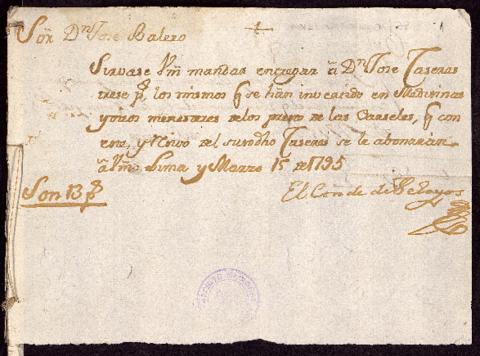 Sōr Dn Jose Balero
Sirvase Vm mandar entregar â Dn Jose Taseras
trese ps, los mismos qe se han invertido en Medicinas
y otros menesteres de los presos de las Carseles, qe con
esta, y recivo del suso dho Taseras se le abonarán
â Vm. Lima y Marzo 15 de 1795
Son 13 ps
El Conde de